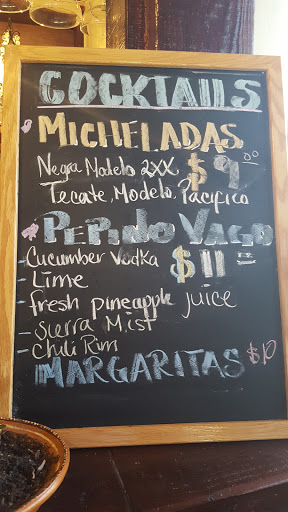 COCKTAILS
MICHELADAS
Negra Modelo 2XX $9.00
Tecate, Modelo, Pacifico
PEPINO VAGO
- Cucumber Vodka $11.00
- Lime
- fresh pineapple juice
- Sierra Mist
- Chili Rim
MARGARITAS $10